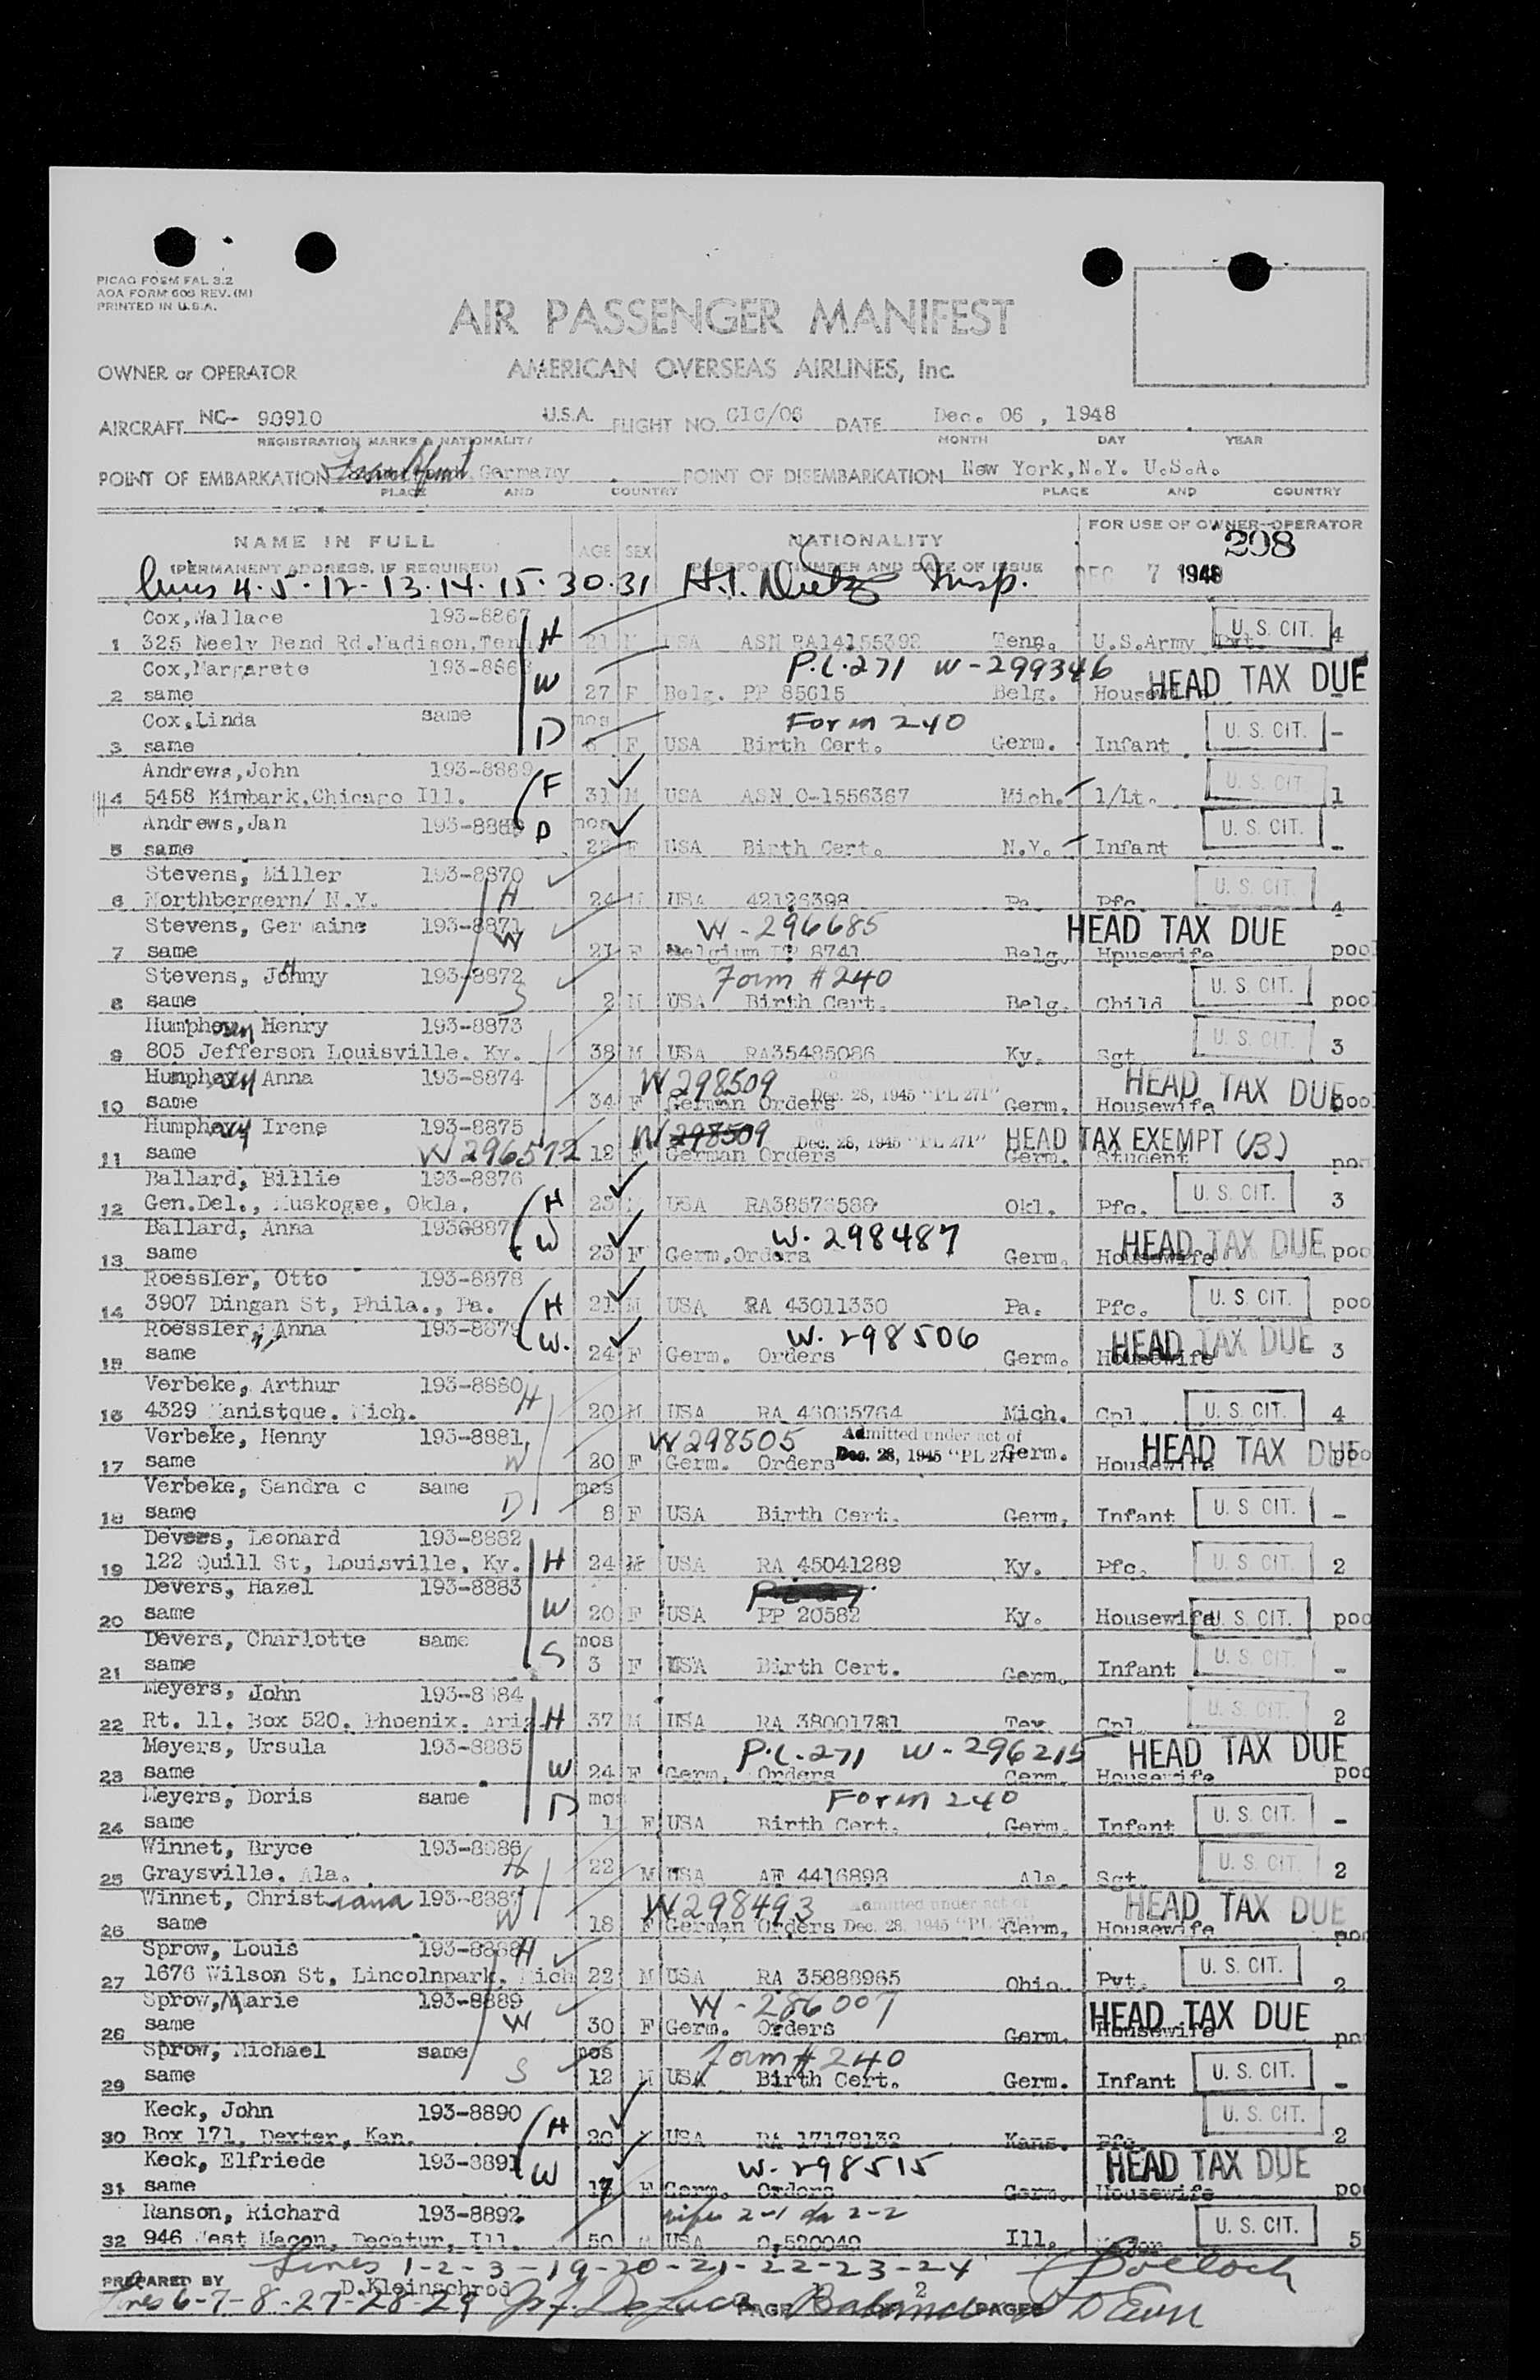 PICAO FORM FAL 3.2
AOA FORM 608 REV. (M)
PRINTED IN U.S.A.
AIR PASSENGER MANIFEST
AMERICAN OVERSEAS AIRLINES, Inc.
OWNER or OPERATOR
AIRCRAFT NC- 90910 U.S.A. FLIGHT NO. DATE Dec. 06 , 1948
REGISTRATION MARKS & NATIONALITY MONTH DAY YEAR
POINT OF EMBARKATION Frankfurt, Germany POINT OF DISEMBARKATION New York,N.Y. U.S.A.
PLACE AND COUNTRY PLACE AND COUNTRY
NAME IN FULL AGE SEX NATIONALITY FOR USE OF OWNER-OPERATOR
(PERMANENT ADDRESS, IF REQUIRED) PASSPORT NUMBER AND DATE OF ISSUE 208
lines 4-5-12-13-14-15-30-31 H.I. Dietz Insp. DEC 7 1948
Cox,Wallace 193-8867
1 325 Neely Bend Rd.Madison,Tenn H 21 M USA ASN RA14155392 Tenn. U.S.Army Pvt. U. S. CIT. 4
Cox,Margarete 193-886 P.L.271 W-299346 HEAD TAX DUE
2 same W 27 F Belg. PP 85615 Belg. Housewife -
Cox,Linda same mos Form 240
3 same D 6 F USA Birth Cert. Germ. Infant U. S. CIT. -
Andrews,John 193-8869
4 5458 Kimbark,Chicago Ill. F 31 M USA ASN O-1556367 Mich. 1/Lt. U. S. CIT. 1
Andrews,Jan 193-8869 mos
5 same D 22 F USA Birth Cert. N.Y. Infant U. S. CIT. -
Stevens, Miller 193-8870
6 Northbergern/ N.Y. H 24 M USA 42126398 Pa. Pfc. U. S. CIT. 4
Stevens, Germaine 193-8871 W-296685 HEAD TAX DUE
7 same W 21 F Belgium PP 8741 Belg. Hpusewife pool
Stevens, Johny 193-8872 Form #240
8 same S 2 M USA Birth Cert. Belg. Child U. S. CIT. pool
Humphrey Henry 193-8873
9 805 Jefferson Louisville. Ky. 38 M USA RA35485086 Ky. Sgt. U. S. CIT. 3
Humphrey Anna 193-8874 W298509 Dec. 28, 1945 "PL 271" HEAD TAX DUE
10 same 34 F German Orders Germ. Housewife pool
Humphrey Irene 193-8875 W 298509 Dec. 28, 1945 "PL 271" HEAD TAX EXEMPT (B)
11 same W296572 12 F German Orders Germ. Student poo
Ballard, Billie 193-8876
12 Gen.Del., Muskogee, Okla. H 23 M USA RA38576588 Okl. Pfc. U. S. CIT. 3
Ballard, Anna W. 298487 HEAD TAX DUE
13 same W 23 F Germ.Orders Germ. Housewife poo
Roessler, Otto 193-8878
14 3907 Dingan St, Phila., Pa. H 21 M USA RA 43011330 Pa. Pfc. U. S. CIT. poo
Roessler, Anna 193-8879 W. 298506 HEAD TAX DUE
15 same W. 24 F Germ. Orders Germ. Housewife 3
Verbeke, Arthur 193-8880
16 4329 Manistque. Mich. H 20 M USA RA 46065764 Mich. Cpl. U. S. CIT. 4
Verbeke, Henny 193-8881 W298505 Admitted under act of Dec. 28, 1945 "PL 271" HEAD TAX DUE
17 same W 20 F Germ. Orders Germ. Housewife poo
Verbeke, Sandra c same mos
18 same D 8 F USA Birth Cert. Germ. Infant U. S. CIT. -
Devers, Leonard 193-8882
19 122 Quill St, Louisville, Ky. H 24 M USA RA 45041289 Ky. Pfc. U. S. CIT. 2
Devers, Hazel 193-8883
20 same W 20 F USA PP 20582 Ky. Housewife U. S. CIT. poo
Devers, Charlotte same mos
21 same S 3 F USA Birth Cert. Germ. Infant U. S. CIT. -
Meyers, John 193-8884
22 Rt. 11. Box 520. Phoenix. Ariz H 37 M USA RA 38001781 Tex Cpl U. S. CIT. 2
Meyers, Ursula 193-8885 P.L.271 W-296215 HEAD TAX DUE
23 same W 24 F Germ. Orders Germ. Housewife poo
Meyers, Doris same mos Form 240
24 same D 1 F USA Birth Cert. Germ. Infant U. S. CIT. -
Winnet, Bryce 193-8886
25 Graysville. Ala. H 22 M USA AF 4416898 Ala. Sgt. U. S. CIT. 2
Winnet, Christiana 193-8887 W298493 Admitted under act of Dec. 28, 1945 HEAD TAX DUE
26 same W 18 F German Orders Germ. Housewife poo
Sprow, Louis 193-8888 H
27 1676 Wilson St, Lincolnpark, Mich 22 M USA RA 35888965 Ohio. Pvt. U. S. CIT. 2
Sprow, Marie 193-8889 W-286007 HEAD TAX DUE
28 same W 30 F Germ. Orders Germ. Housewife poo
Sprow, Michael same mos Form #240
29 same S 12 M USA Birth Cert. Germ. Infant U. S. CIT. -
Keck, John 193-8890
30 Box 171, Dexter, Kan. H 20 USA RA 17178132 Kans. Pfc. U. S. CIT. 2
Keck, Elfriede 193-8891 W. 298515 HEAD TAX DUE
31 same W 17 F Germ. Orders Germ. Housewife poo
Ranson, Richard 193-8892 2-1 2-2
32 946 West Macon, Decatur, Ill. 50 M USA 0.520049 Ill. Major U. S. CIT. 5
Lines 1-2-3-19-20-21-22-23-24 Pollock
PREPARED BY D.Kleinschrod
Lines 6-7-8-27-28-29 PAGE Balance 2 PAGES